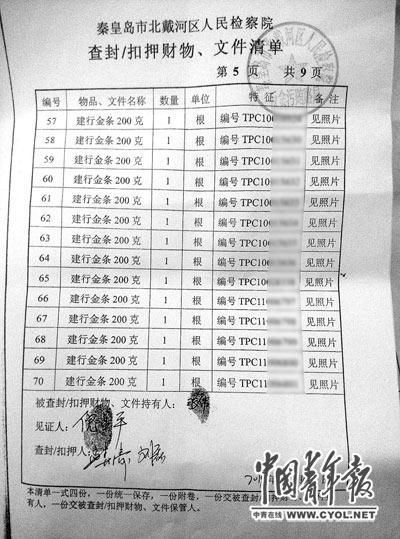 秦皇岛市北戴河区人民检察院
查封/扣押财物、文件清单
第 5 页 共 9 页
编号 物品、文件名称 数量 单位 特 征 备 注
57 建行金条 200 克 1 根 编号 TPC10 见照片
58 建行金条 200 克 1 根 编号 TPC10 见照片
59 建行金条 200 克 1 根 编号 TPC10 见照片
60 建行金条 200 克 1 根 编号 TPC10 见照片
61 建行金条 200 克 1 根 编号 TPC10 见照片
62 建行金条 200 克 1 根 编号 TPC10 见照片
63 建行金条 200 克 1 根 编号 TPC10 见照片
64 建行金条 200 克 1 根 编号 TPC10 见照片
65 建行金条 200 克 1 根 编号 TPC10 见照片
66 建行金条 200 克 1 根 编号 TPC11 见照片
67 建行金条 200 克 1 根 编号 TPC11 见照片
68 建行金条 200 克 1 根 编号 TPC11 见照片
69 建行金条 200 克 1 根 编号 TPC11 见照片
70 建行金条 200 克 1 根 编号 TPC11 见照片
被查封/扣押财物、文件持有人：
见证人：
查封/扣押人：
本清单一式四份，一份统一保存，一份附卷，一份交被查封/扣押财
有人，一份交被查封/扣押财物、文件保管人。
中国青年报
中青在线 WWW.CYOL.NET